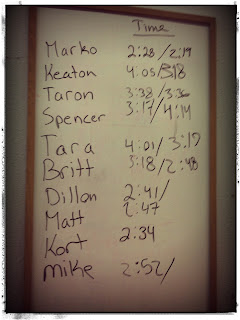 Time
Marko 2:28/2:19
Keaton 4:05/3:18
Taron 3:38/3:30
Spencer 3:17/4:14
Tara 4:01/3:17
Britt 3:18/2:48
Dillon 2:41/
Matt 2:47
Kort 2:34
mike 2:52/